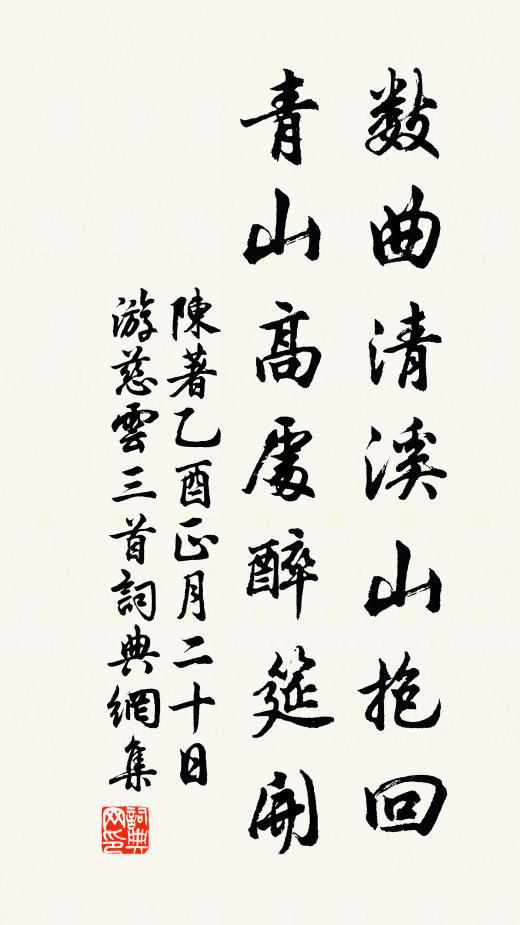 数曲清溪山抱回
青山高處醉筵開
陳著乙酉正月二十日
游慈雲三首詞典網集
詞典网印